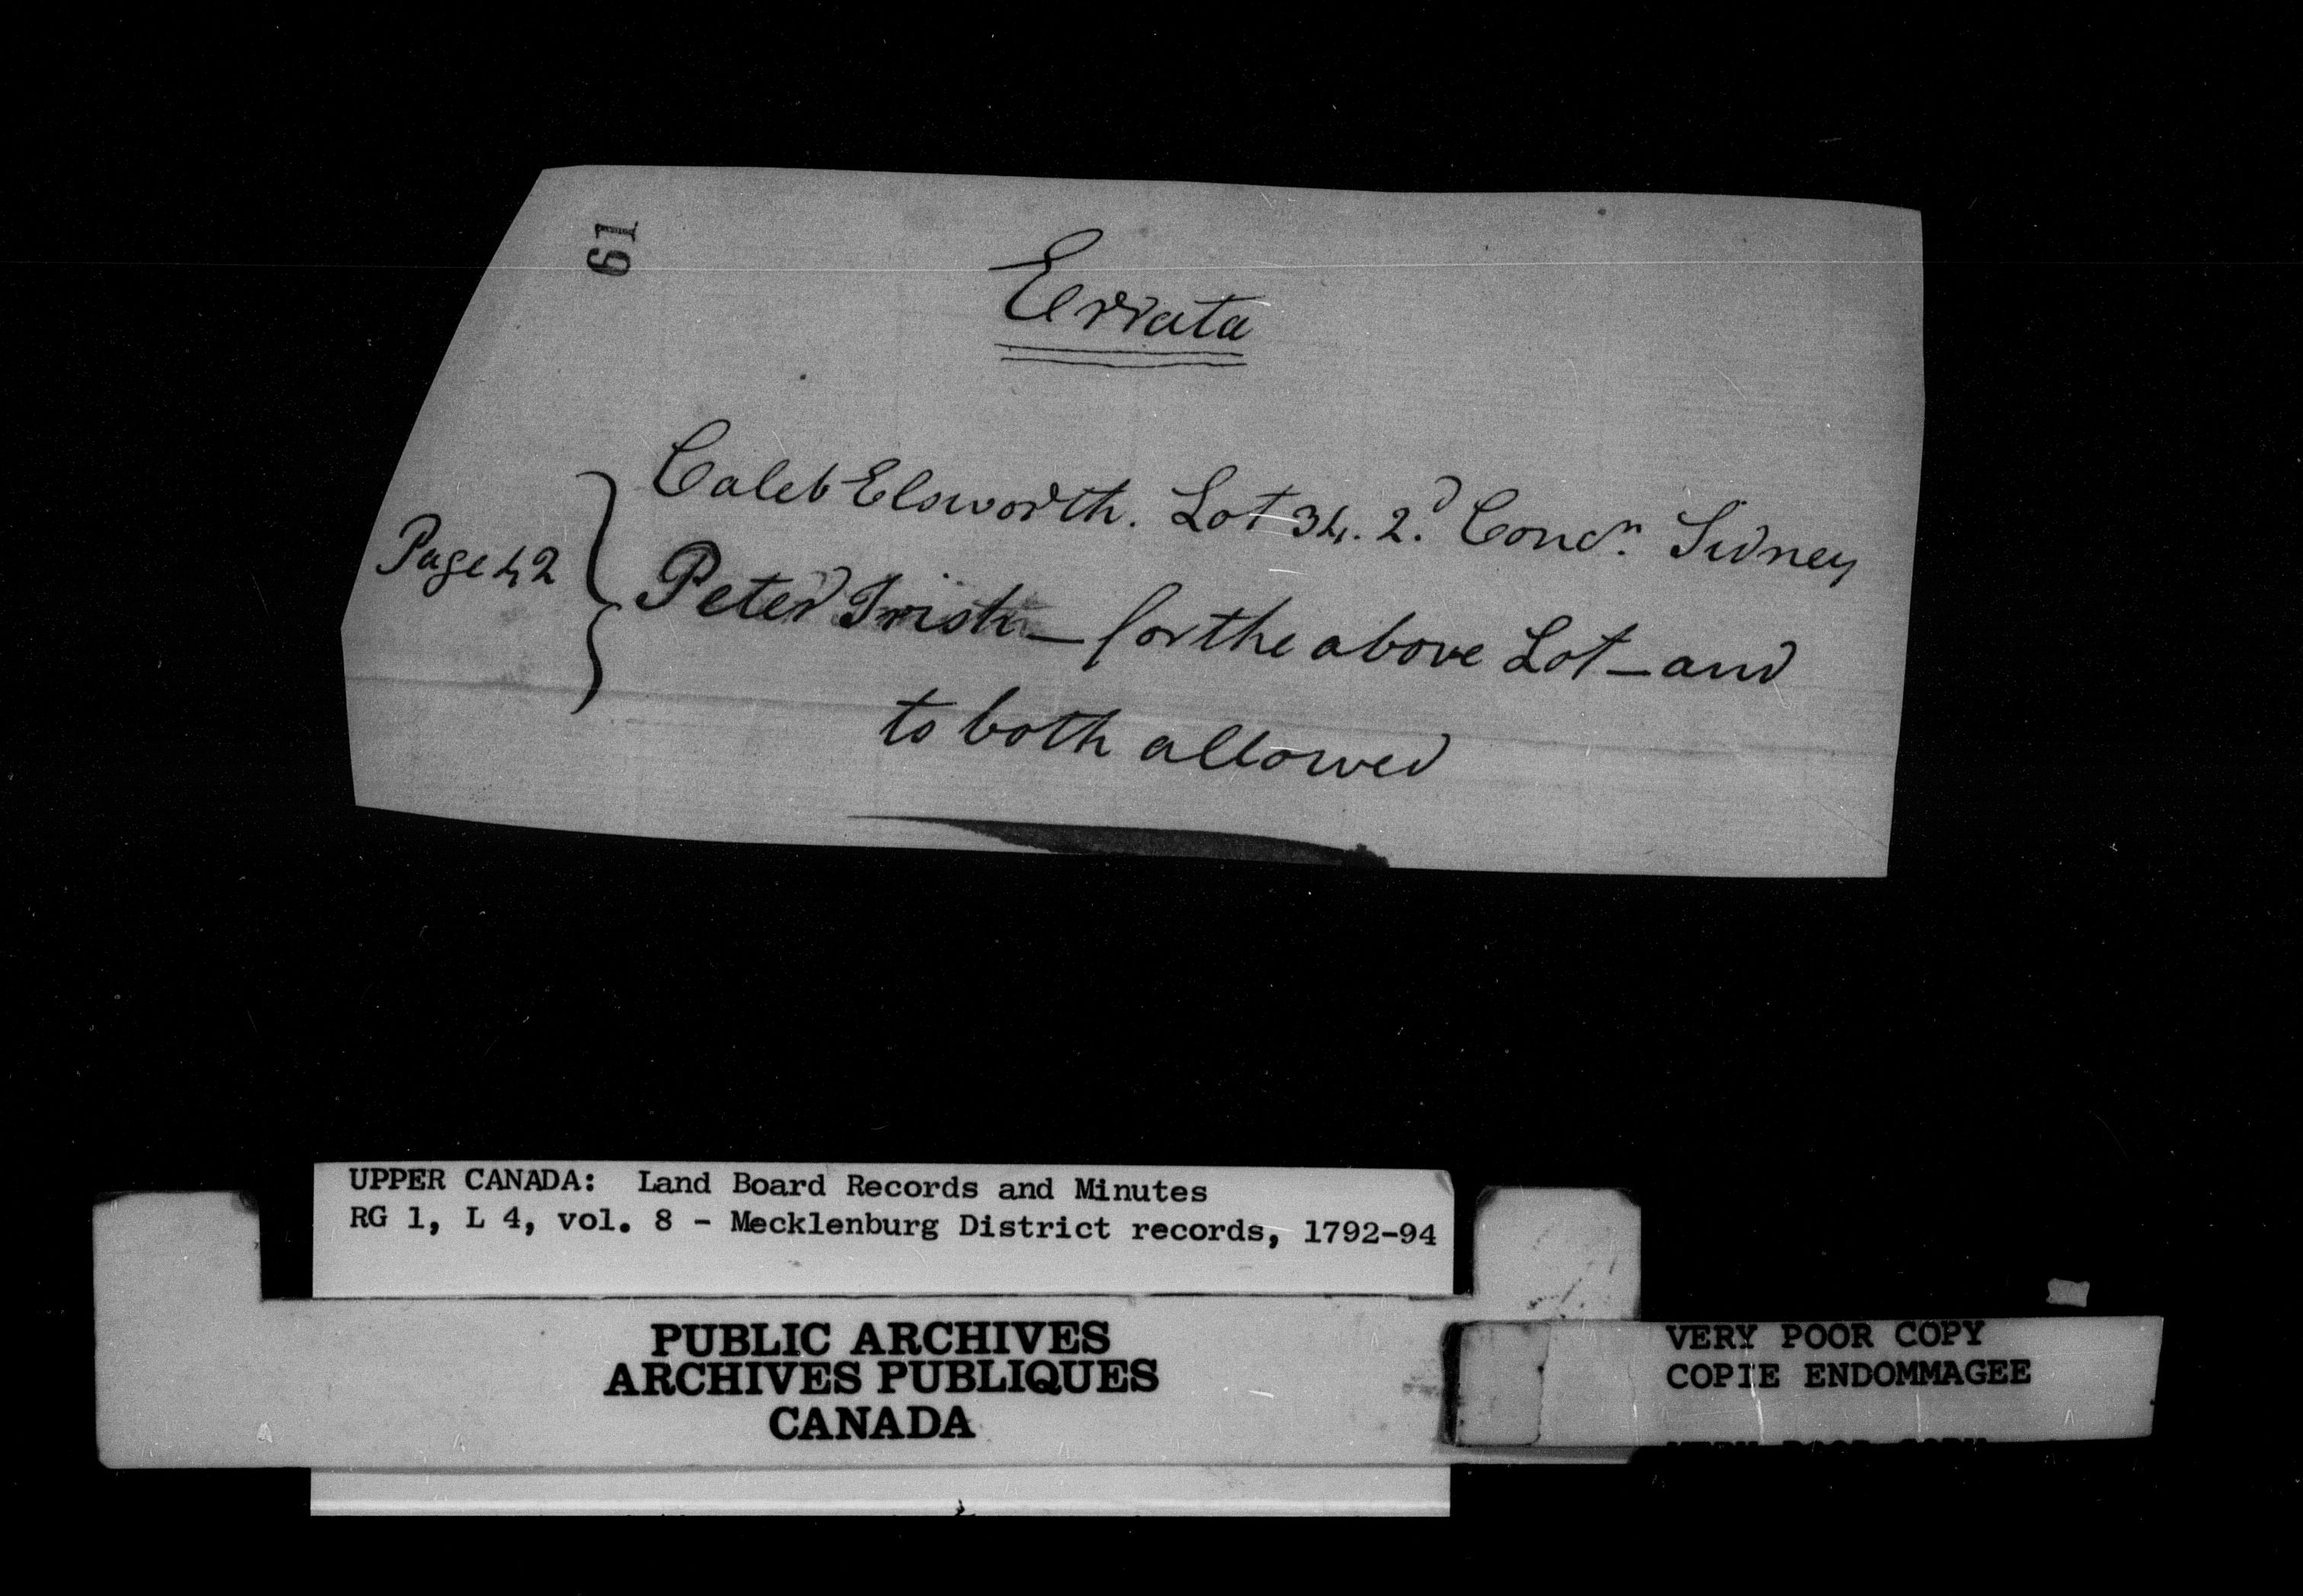 61
Errata
Caleb Elsworth. Lot 34. 2.d Concn. Sidney
Page 42
Peter Irish — for the above Lot — and
to both allowed
UPPER CANADA: Land Board Records and Minutes
RG 1, L 4, vol. 8 - Mecklenburg District records, 1792-94
PUBLIC ARCHIVES
ARCHIVES PUBLIQUES
CANADA
VERY POOR COPY
COPIE ENDOMMAGEE